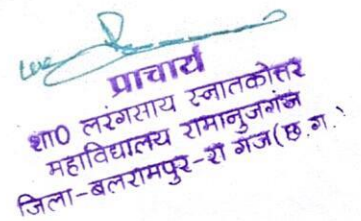 प्राचार्य
शा0 लरंगसाय स्नातकोत्तर
महाविद्यालय रामानुजगंज
जिला-बलरामपुर-रा गंज(छ.ग.